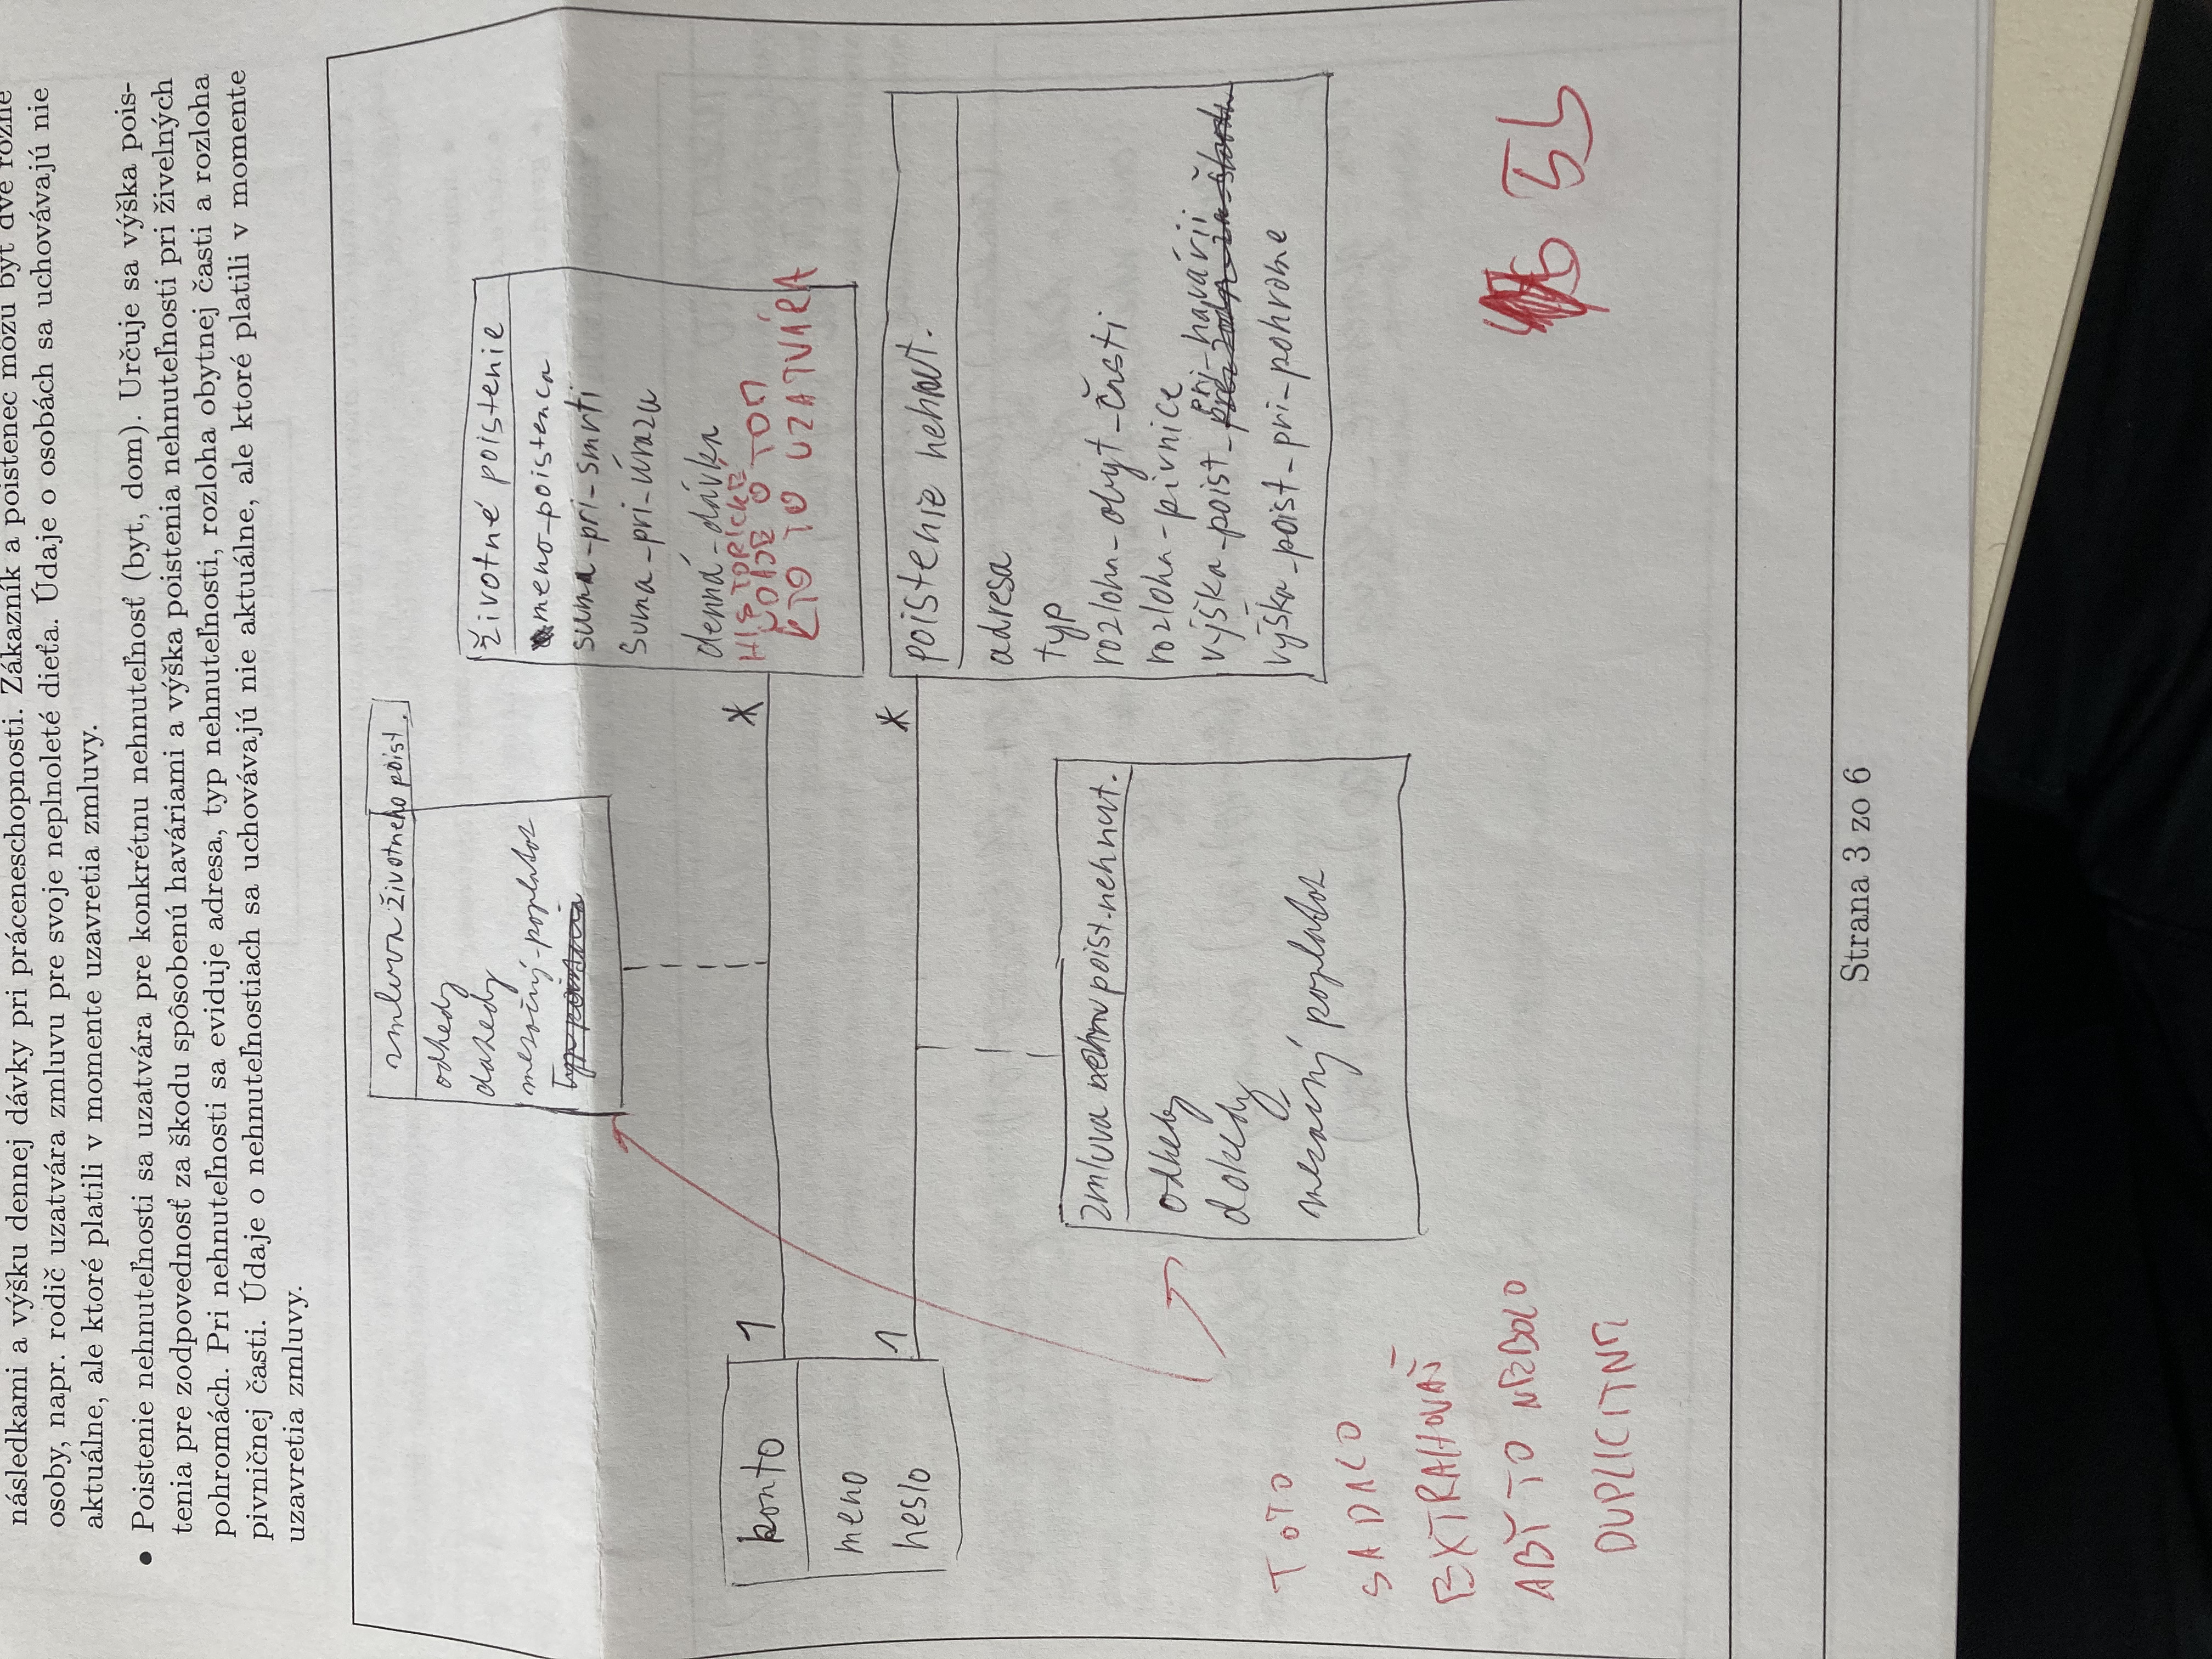 následkami a výšku dennej dávky pri práceneschopnosti. Zákazník a poistenec môžu byť dve rôzne
osoby, napr. rodič uzatvára zmluvu pre svoje neplnoleté dieťa. Údaje o osobách sa uchovávajú nie
aktuálne, ale ktoré platili v momente uzavretia zmluvy.
• Poistenie nehnuteľnosti sa uzatvára pre konkrétnu nehnuteľnosť (byt, dom). Určuje sa výška pois-
tenia pre zodpovednosť za škodu spôsobenú haváriami a výška poistenia nehnuteľnosti pri živelných
pohromách. Pri nehnuteľnosti sa eviduje adresa, typ nehnuteľnosti, rozloha obytnej časti a rozloha
pivničnej časti. Údaje o nehnuteľnostiach sa uchovávajú nie aktuálne, ale ktoré platili v momente
uzavretia zmluvy.
zmluva životneho poist.
odkedy
dokedy
mesačný-poplatok
typ poistenia
životné poistenie
meno-poistenca
suma-pri-smrti
suma-pri-úrazu
denná-dávka
HISTORICKÉ
ÚDAJE O TOM
KTO TO UZATVÁRA
konto
meno
heslo
1
*
1
*
poistenie nehnut.
adresa
typ
rozloha-obyt-časti
rozloha-pivnice
pri-havárii
výška-poist-pre zodp-za-škodu
výška-poist-pri-pohrome
zmluva poist.nehnut.
odkedy
dokedy
mesačný poplatok
TOTO
SA DALO
EXTRAHOVAŤ
ABY TO NEBOLO
DUPLICITNE
5b
Strana 3 zo 6